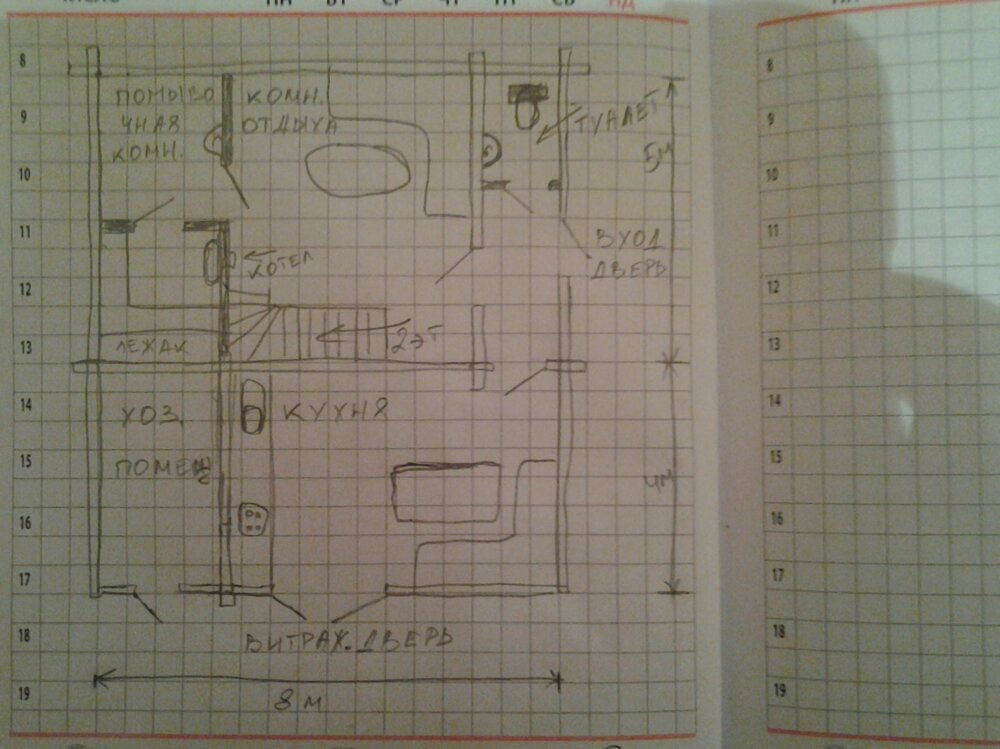 ПН ВТ СР ЧТ ПТ СБ
8
9
10
11
12
13
14
15
16
17
18
19
ПОМЫВО
ЧНАЯ
КОМН.
КОМН.
ОТДЫХА
ТУАЛЕТ
5М
ВХОД
ДВЕРЬ
КОТЕЛ
ЛЕЖАК
2ЭТ
ХОЗ.
ПОМЕЩ
КУХНЯ
4М
ВИТРАЖ. ДВЕРЬ
8 М
8
9
10
11
12
13
14
15
16
17
18
19